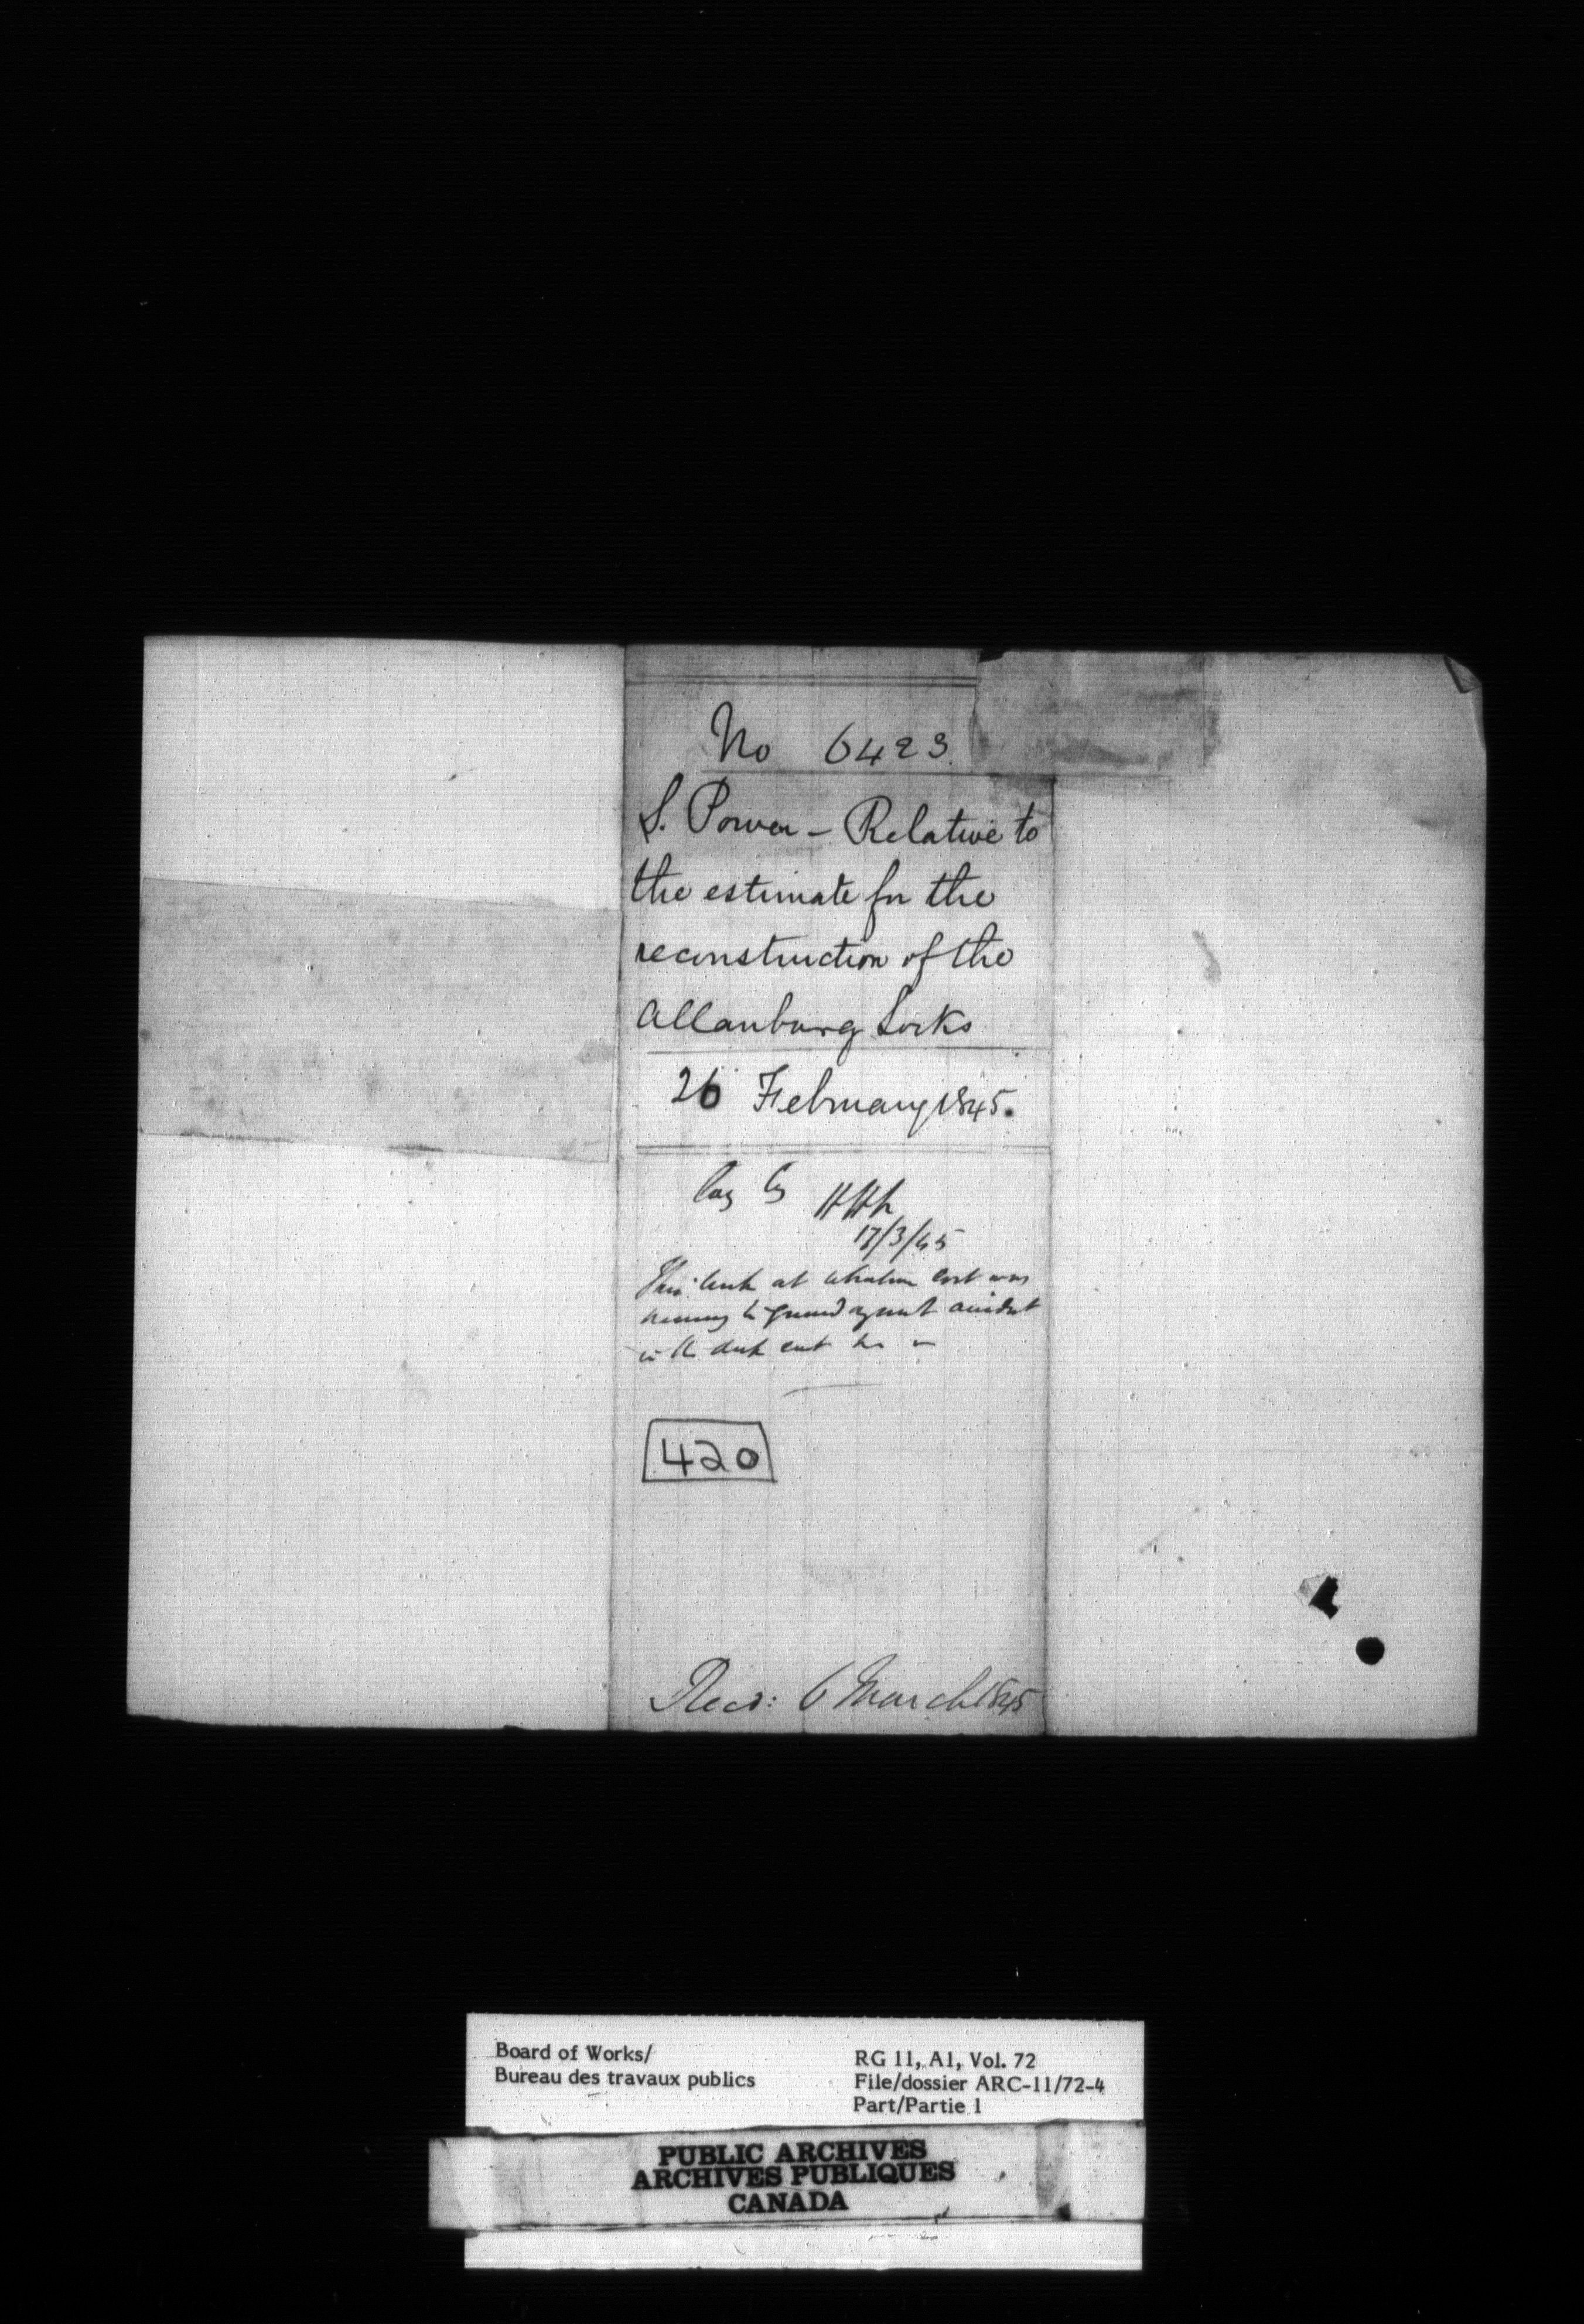 No 6423
S. Power - Relative to
the estimate for the
reconstruction of the
Allanburg Locks
26 February 1845.
HHK
17/3/45
This lock at whatever cost was
necessary to guard against accident
in the
420
Recd: 6 March 1845
Board of Works/
Bureau des travaux publics
RG 11, A1, Vol. 72
File/dossier ARC-11/72-4
Part/Partie 1
PUBLIC ARCHIVES
ARCHIVES PUBLIQUES
CANADA